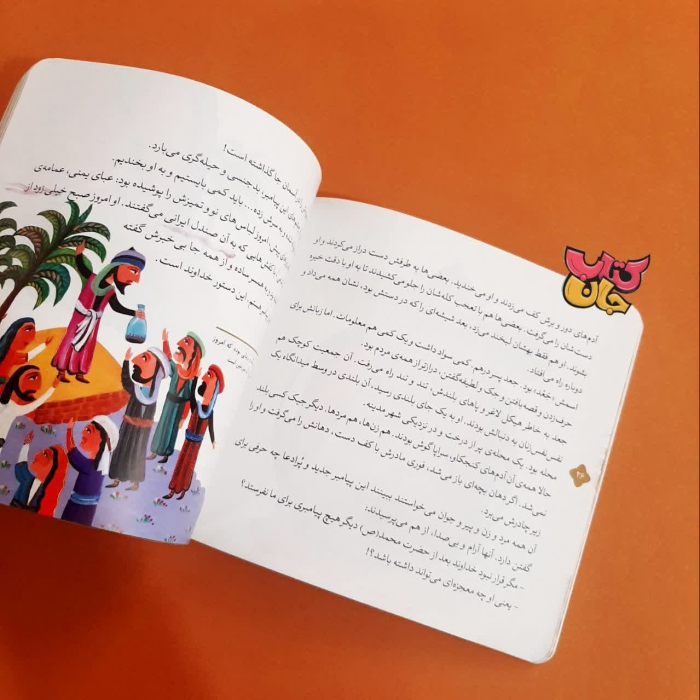 کتاب
جان
آدم‌های دور و برش کف می‌زدند و او می خندید. بعضی ها به طرفش دست دراز می‌کردند و او
دست‌شان را می‌گرفت. بعضی‌ها هم با تعجب کله‌شان را جلو می‌کشیدند تا به او با دقت خیره
بشوند. او هم فقط بهشان لبخند می‌زد، بعد شیشه‌ای را که در دستش بود، نشان همه می‌داد و
دوباره راه می‌افتاد.
اسمش جُغد بود. جعد پسر درهم. کمی سواد داشت و یک کمی هم معلومات. اما زبانش برای
حرف‌زدن و قصه‌بافتن و جک و لطیفه‌گفتن، درازتر از همه‌ی مردم بود.
جعد به خاطر هیکل لاغر و پاهای بلندش، تند و تند راه می‌رفت. آن جمعیت کوچک هم
نفس‌نفس‌زنان به دنبالش بودند. او به یک جای بلندی رسید. آن بلندی در وسط میدانگاه یک
محله بود. یک محله‌ی پر از درخت و در نزدیکی شهر مدینه.
حالا همه‌ی آن آدم‌های کنجکاو، سراپا گوش بودند. هم زن‌ها، هم مردها، دیگر جیک کسی بلند
نمی‌شد. اگر دهان بچه‌ای باز می‌شد، فوری مادرش با کف دست، دهانش را می‌گرفت و او را
زیر چادرش می‌برد.
آن همه مرد و زن و پیر و جوان می‌خواستند ببینند این پیامبر جدید و پُرادعا چه حرفی برای
گفتن دارد. آنها آرام و بی‌صدا، از هم می‌پرسیدند:
- مگر قرار نبود خداوند بعد از حضرت محمد(ص) دیگر هیچ پیامبری برای ما نفرستد؟
- یعنی او چه معجزه‌ای می‌تواند داشته باشد؟!
۲۶
انسان‌ها گذاشته است!
این پیامبر، بدجنسی و حیله‌گری می‌بارد.
باید کمی بایستیم و به او بخندیم.
امروز لباس‌های نو و تمیزش را پوشیده بود: عبای یمنی، عمامه‌ی
هایی که به آن صندل ایرانی می‌گفتند. او امروز صبح خیلی زود از
ساده و از همه جا بی خبرش گفته
هستم. این دستور خداوند است.
بوده که امروز
است